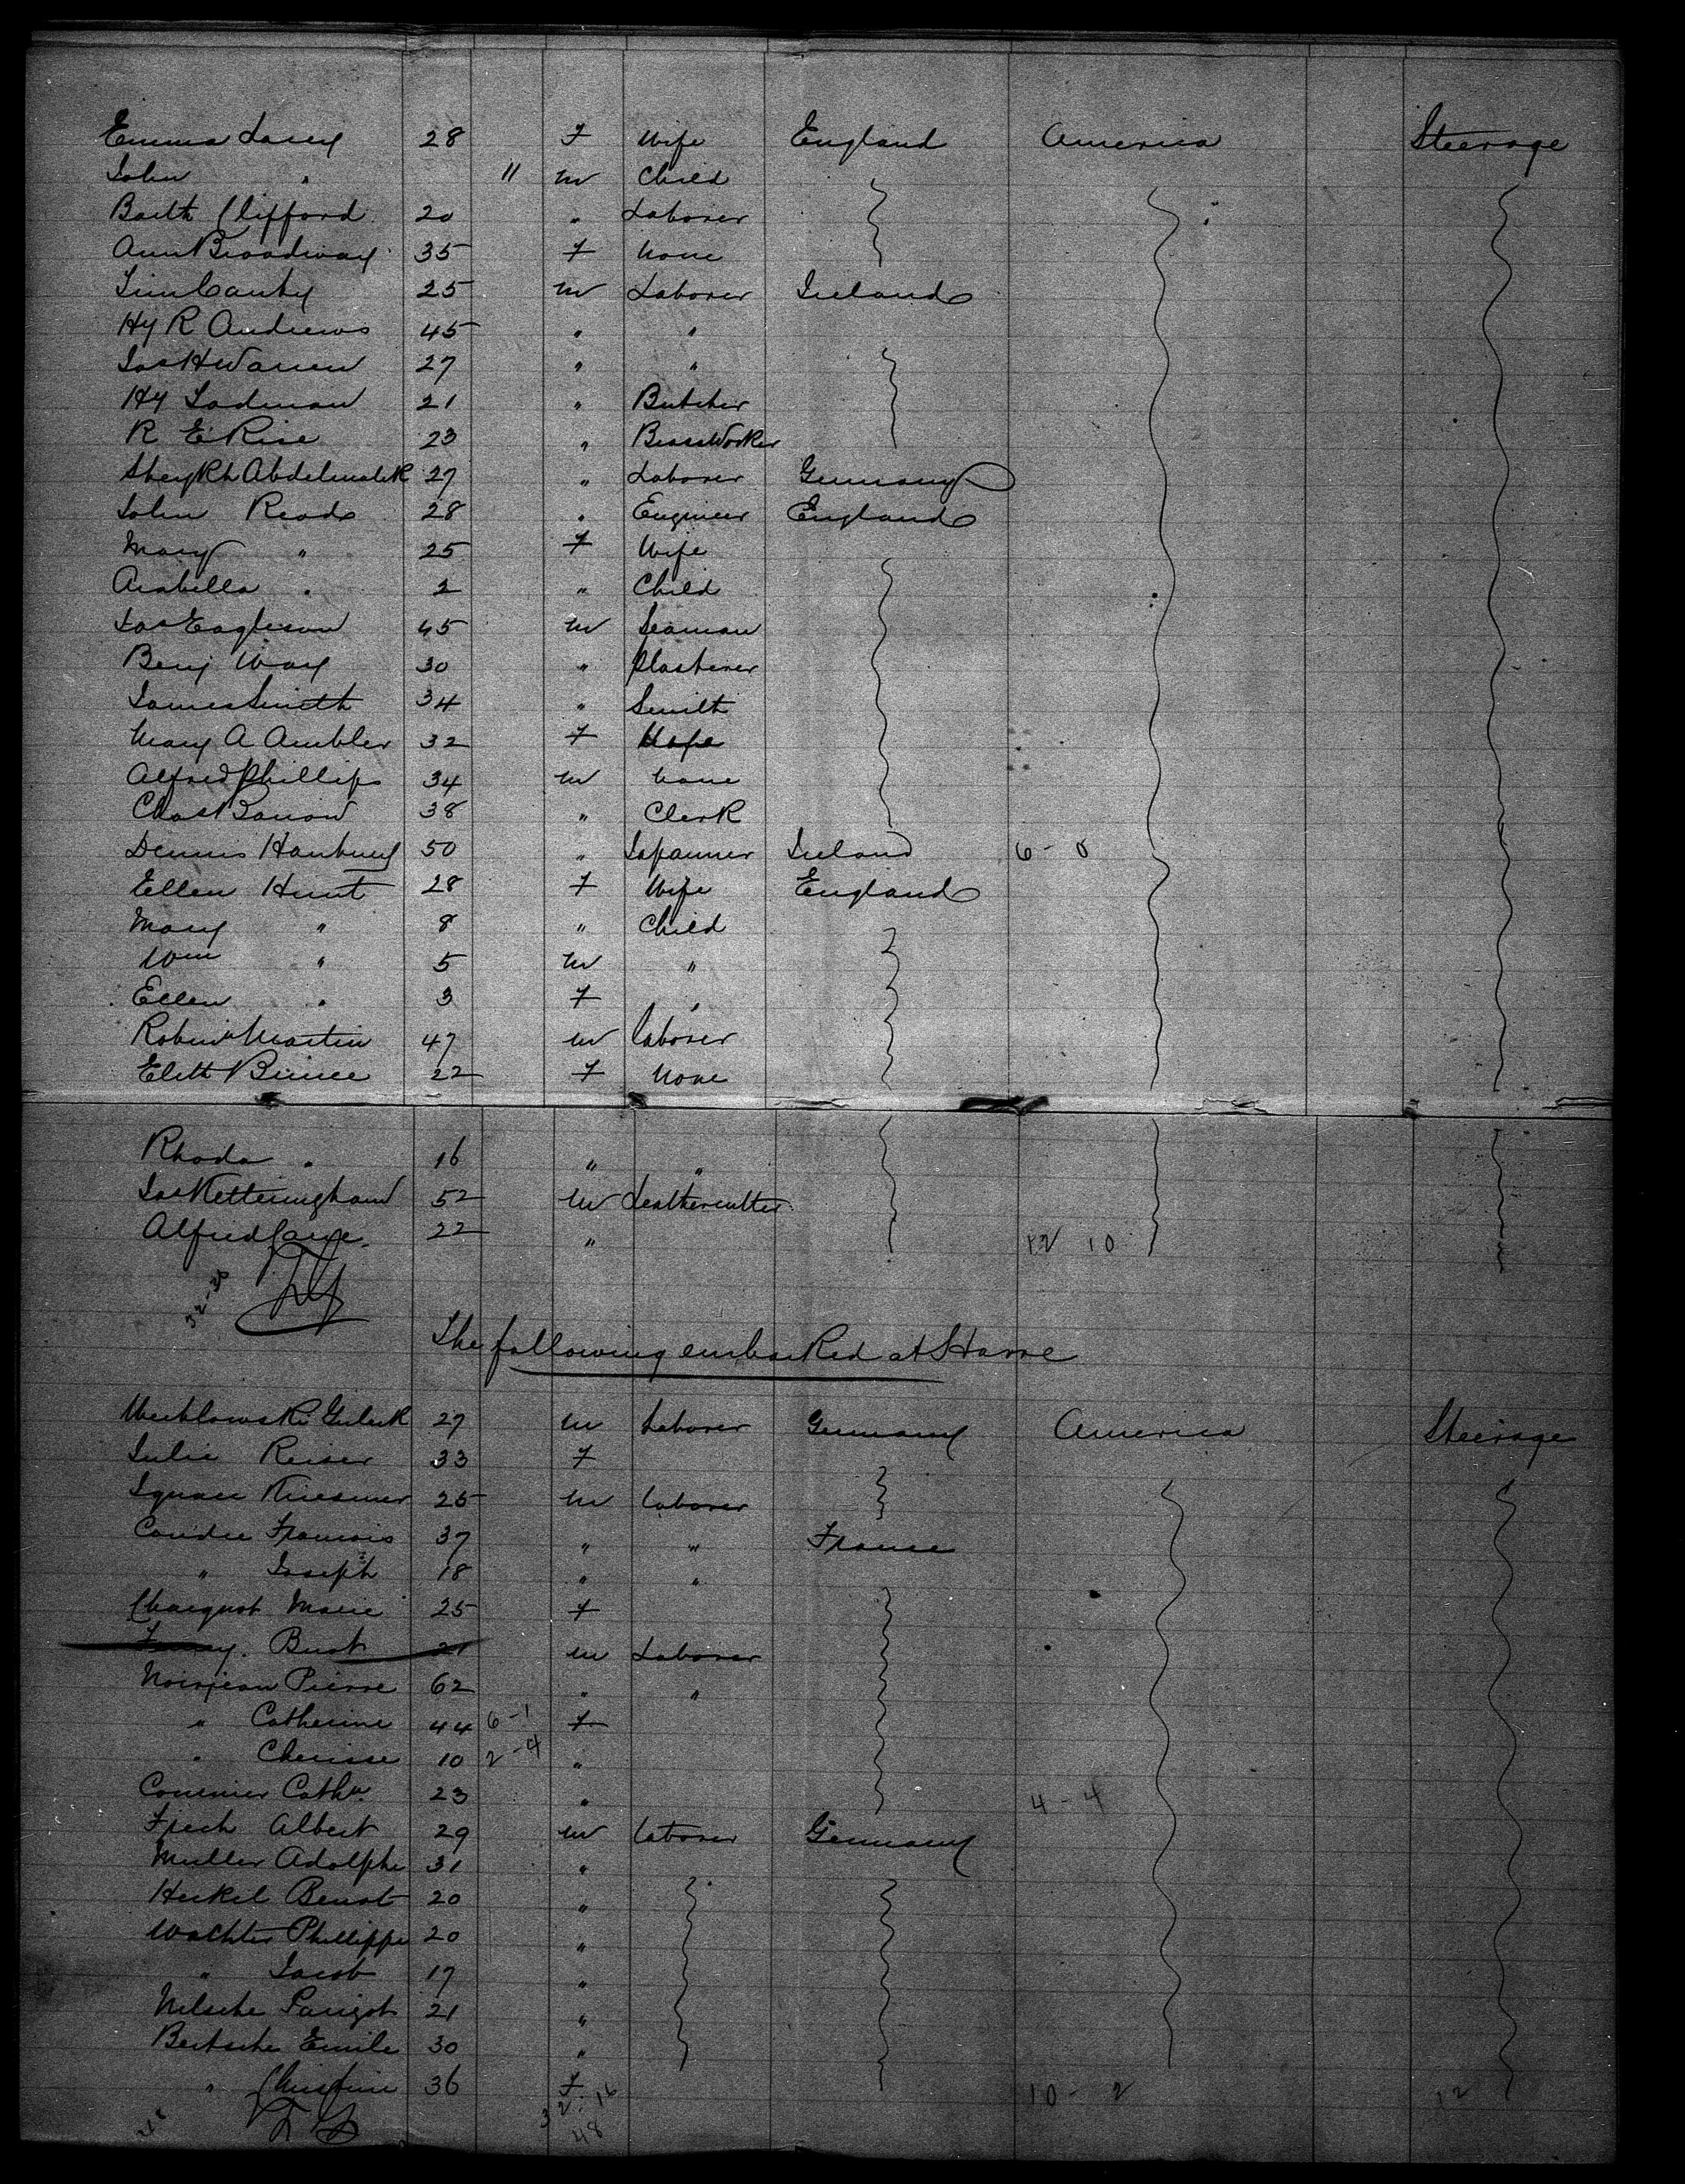 Emma Lacey 28 F Wife England America Steerage
John " 11 m Child
Barth Clifford 20 " Laborer
Ann Broadway 35 F None
Tim Canty 25 m Laborer Ireland
Hy R Andrews 45 " "
Jas H Warren 27 " "
Hy Lodman 21 " Butcher
R E Rise 23 " BrassWorker
Sheykh Abdelmalek 27 " Laborer Germany
John Reads 28 " Engineer England
Mary " 25 F Wife
Arabella " 2 " Child
Jas Eagleson 45 m Seaman
Benj Way 30 " Plasterer
James Smith 34 " Smith
Mary A Ambler 32 F
Alfred Phillips 34 m None
Chas Barrow 38 " Clerk
Dennis Hanbury 50 " Japanner Ireland 6 - 0
Ellen Hunt 28 F Wife England
Mary " 8 " Child
Wm " 5 m "
Ellen " 3 F "
Martin 47 m laborer
Elith Bunce 22 F None
Rhoda " 16 " "
Jas Ketteringham 52 m Leathercutter
Alfred 22 " 12 10
The following embarked at Havre
27 m Laborer Germany America Steerage
Julie Reiser 33 F
Ignace 25 m laborer
Francois 37 " " France
" Joseph 18 " "
Charquot Marie 25 F
Bust 21 m Laborer
Noirjean Pierre 62 " "
" Catherine 44 6-1 F
" 10 2-4 "
Cathe 23 " 4-4
Frech Albert 29 m laborer Germany
Muller Adolphe 31 "
Heckel Benoit 20 "
Wachter Philippe 20 "
" Jacob 17 "
21 "
Bertsche Emile 30 "
" Christine 36 F 10 - 2 12
32.16
48